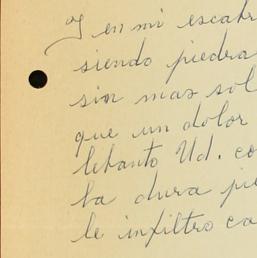 Y en mi escabr
siendo piedra
sin mas sol
que un dolor
lebanto Ud. co
la dura pie
le infiltro ca